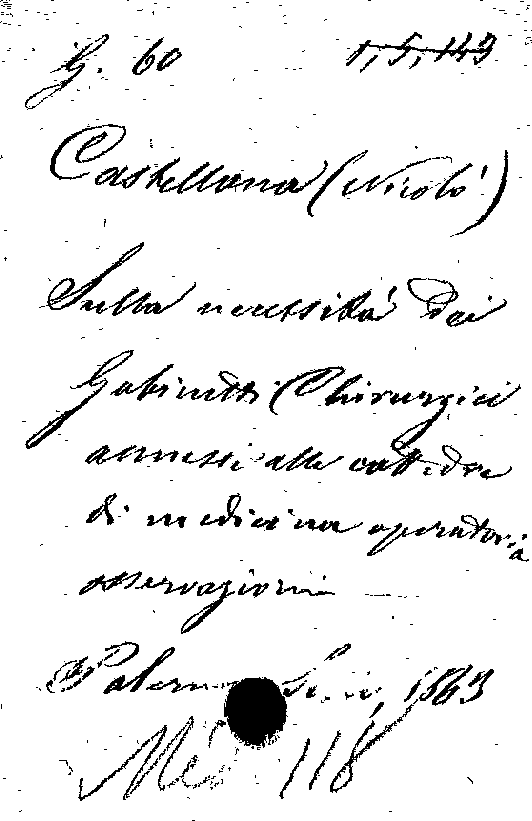 G. 60 1, 5, 143
Castellana (Nicolò)
Sulla necessità dei
Gabinetti Chirurgici
annessi alle cattedre
di medicina operatoria
osservazioni
Palermo 1863
Med 118